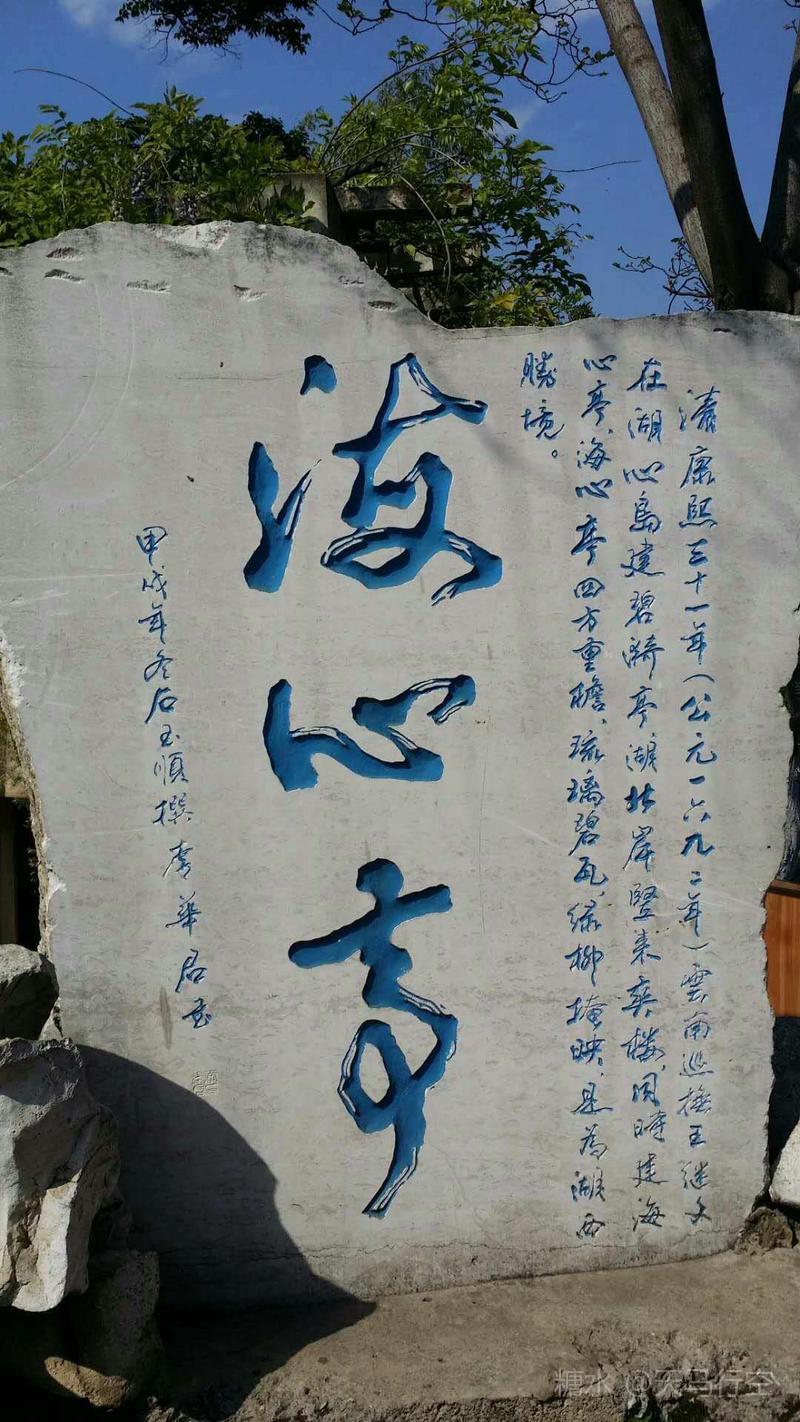 清康熙三十一年(公元一六九二年)雲南巡撫王继文
在湖心島建碧漪亭湖北岸豎来爽楼,同時建海
心亭、海心亭四方重檐、琉璃碧瓦、绿柳掩映、是為湖西
勝境。
海心亭
甲戌年冬石玉順撰 華居書
糖水 @天马行空